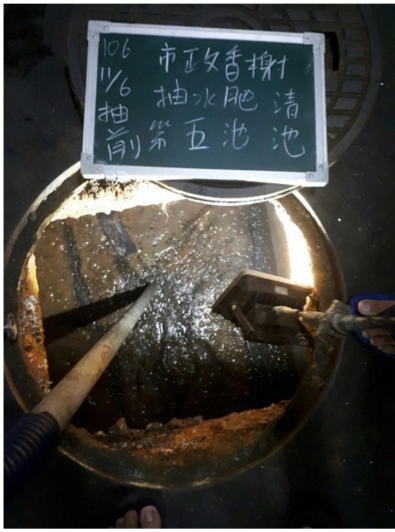 106 市政香榭
11/6 抽水肥 清
抽 第五池 池
前